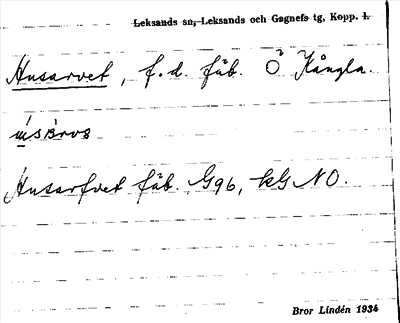 Leksands sn, Leksands och Gagnefs tg, Kopp. l.
Husarvet, f.d. fäb. Ö Kångla.
Husarfvet fäb. G96, kG NO.
Bror Lindén 1934